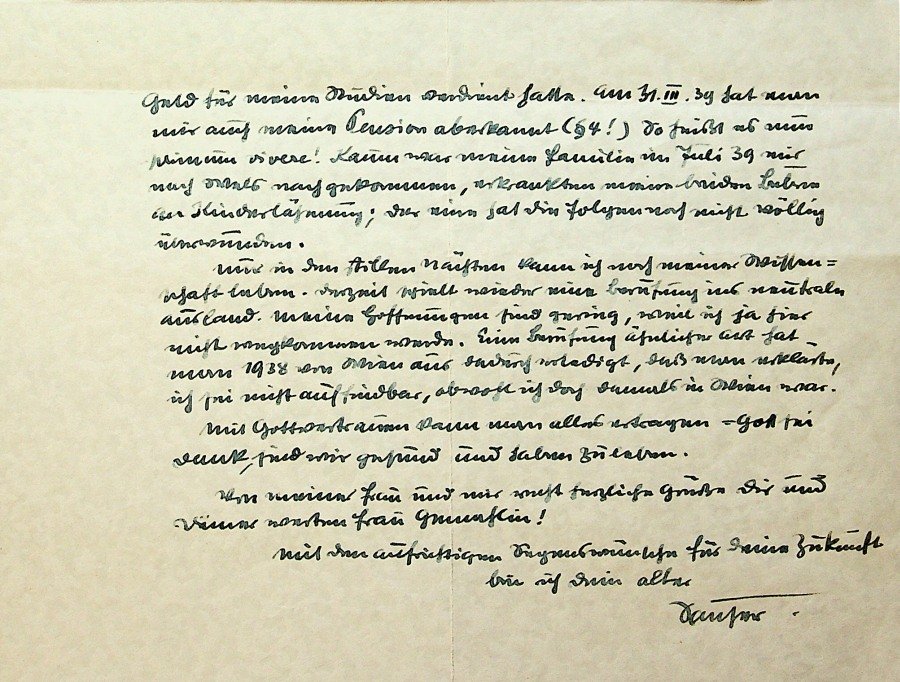 Geld für meine Studien verdient hatte. Am 31.III.39 hat man
mir auch meine Pension aberkannt (§4!) So heißt es nun
primum vivere! Kaum war meine Familie im Juli 39 mir
nach Wels nachgekommen, erkrankten meine beiden Buben
an Kinderlähmung; der eine hat die Folgen noch nicht völlig
überwunden.
Nur in den stillen Nächten kann ich noch meiner Wissen=
schaft leben. Derzeit spielt wieder eine Berufung ins neutrale
Ausland. Meine Hoffnungen sind gering, weil ich ja hier
nicht wegkommen werde. Eine Berufung ähnlicher Art hat
man 1938 von Wien aus dadurch erledigt, daß man erklärte,
ich sei nicht auffindbar, obwohl ich doch damals in Wien war.
Mit Gottvertrauen kann man alles ertragen = Gott sei
Dank, sind wir gesund und haben zu leben.
Von meiner Frau und mir recht herzliche Grüße Dir und
Deiner werten Frau Gemahlin!
Mit den aufrichtigen Segenswünschen für Deine Zukunft
bin ich Dein alter